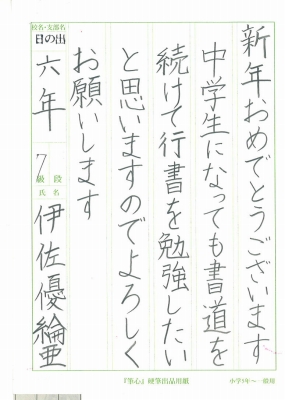 新年おめでとうございます
中学生になっても書道を
続けて行書を勉強したい
と思いますのでよろしく
お願いします
校名・支部名
日の出
六年
7級段
氏名
伊佐優綸亜
『筆心』硬筆出品用紙
小学3年〜一般用